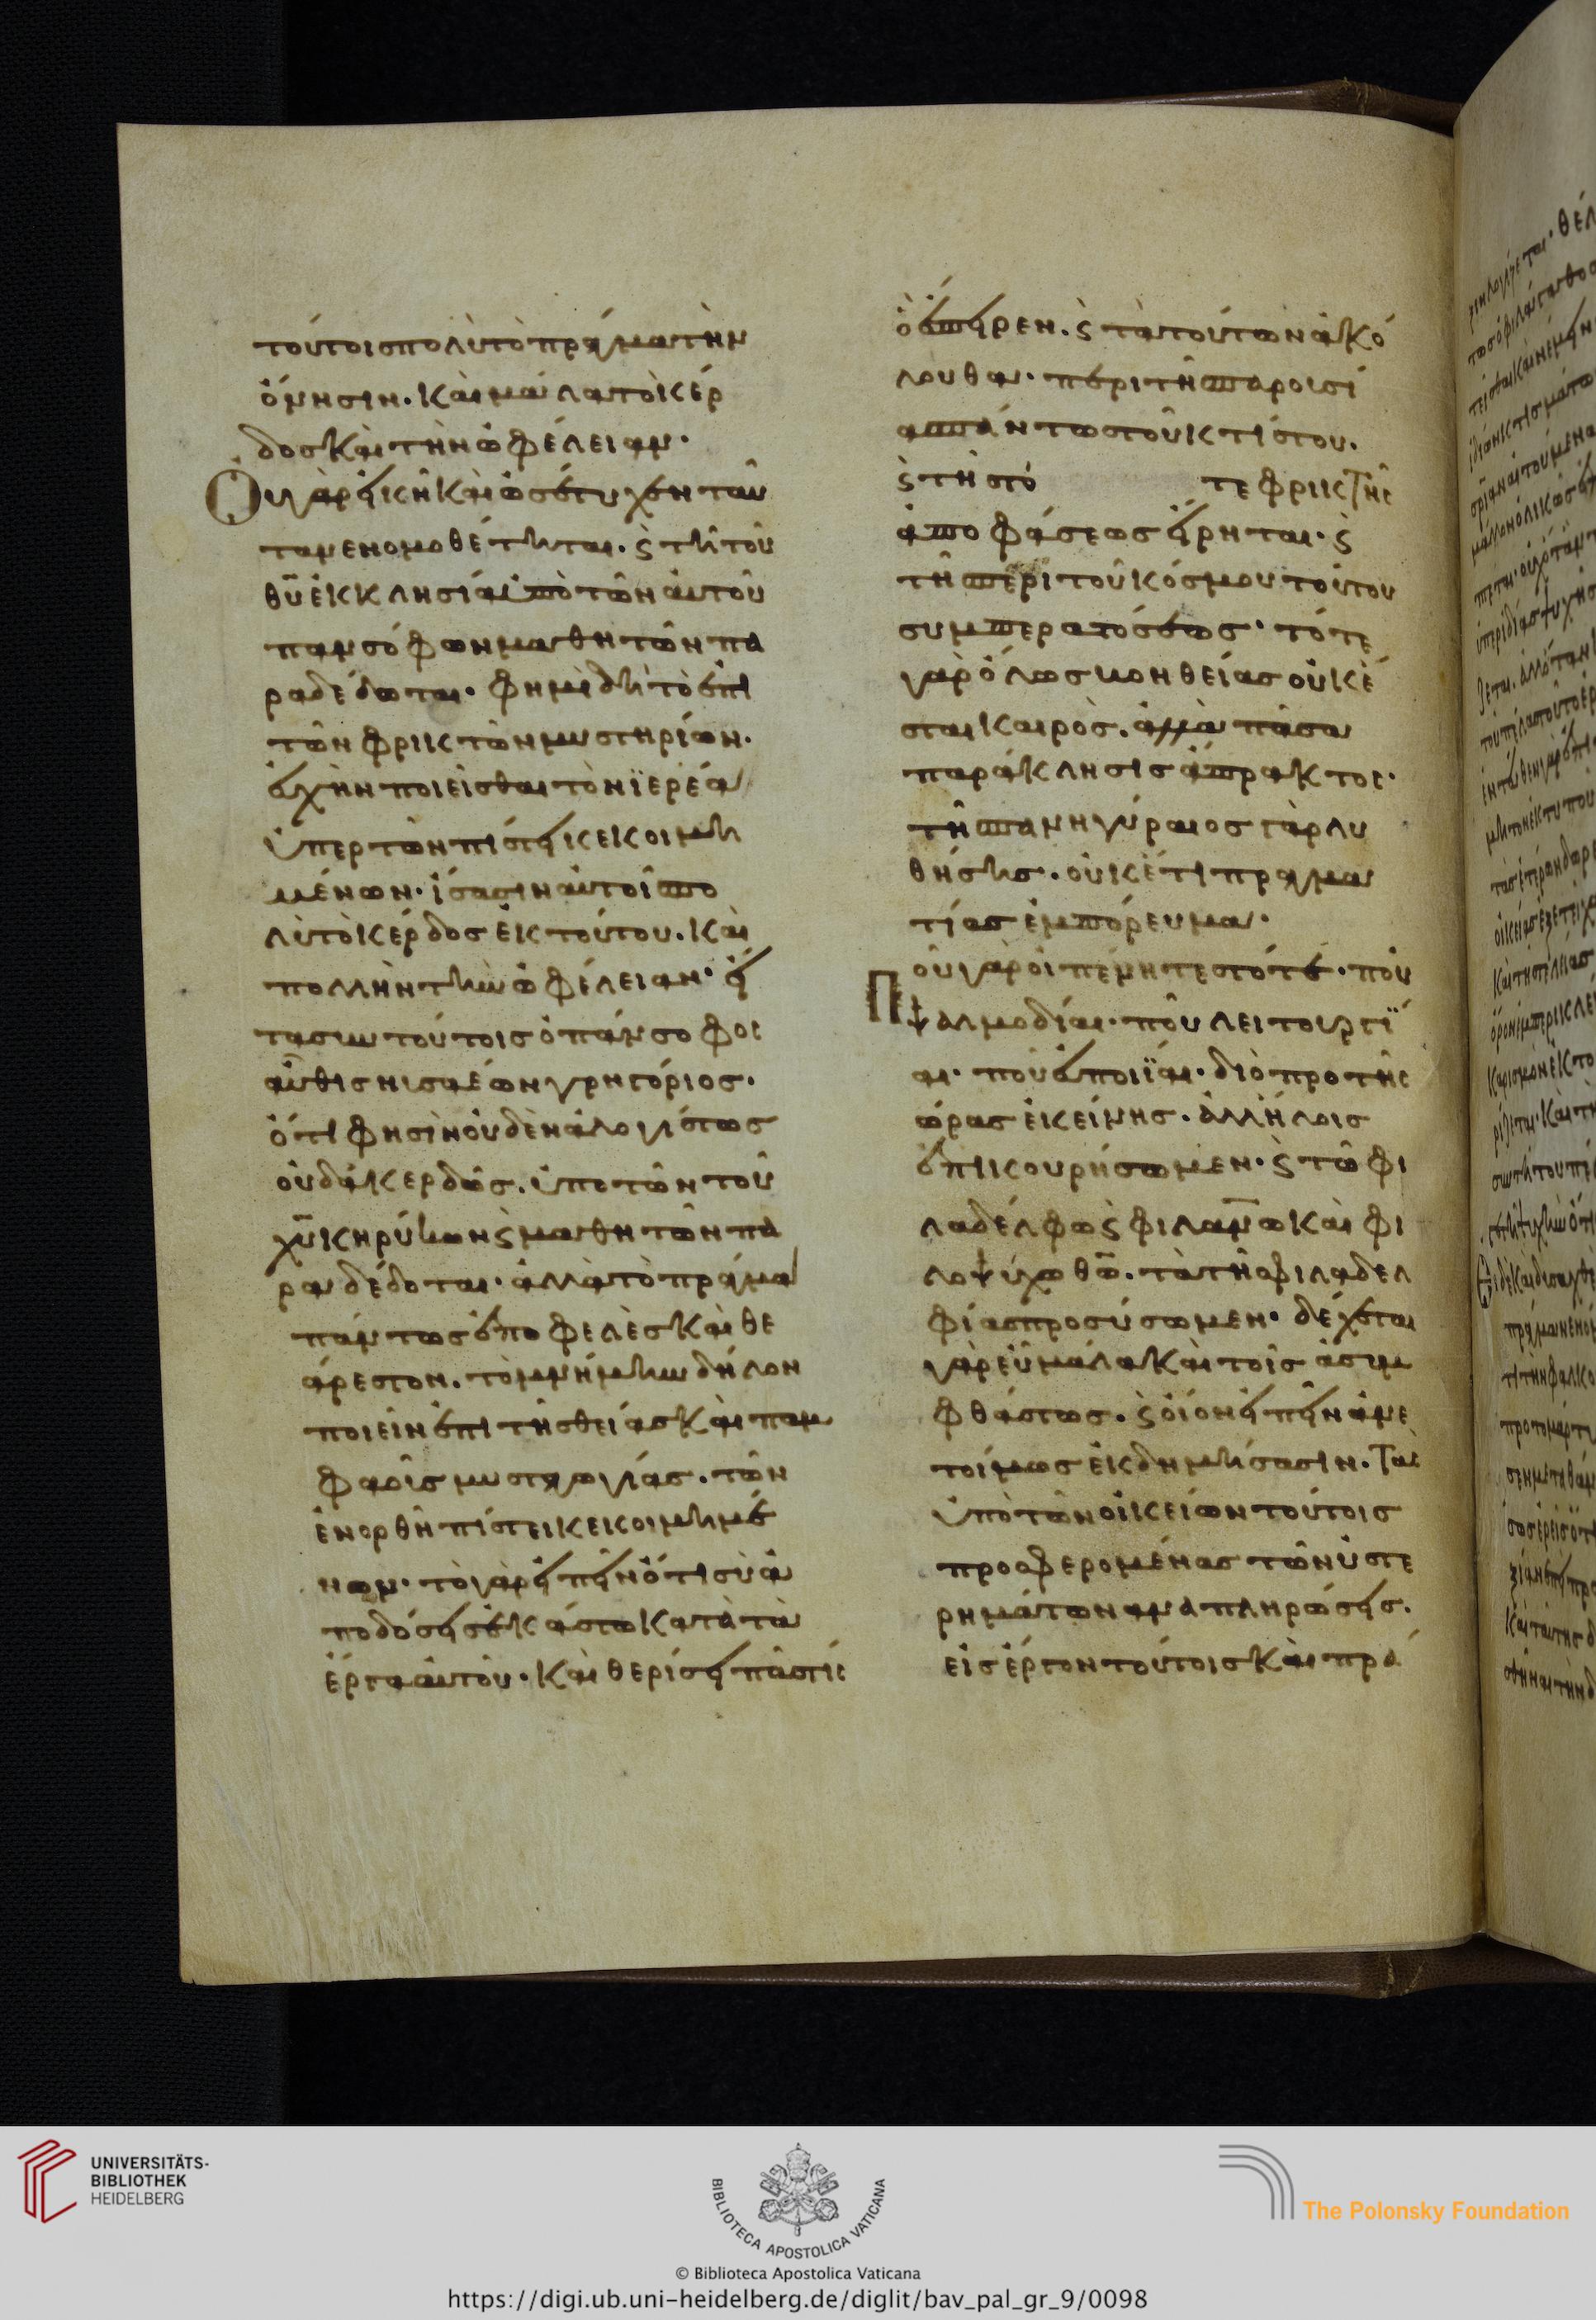 τούτοις πολὺ τὸ πράγμα τὴν
ὄνησιν. καὶ μάλα τὸ κέρ
δος καὶ τὴν ὠφέλειαν·
Οὐ γὰρ εἰκῆ καὶ ὡς ἔτυχεν ταῦ
τα νενομοθέτηται. ϛ τῆ τοῦ
θῡ ἐκκλησίαι ὑπὸ τῶν αὐτοῦ
πανσόφων μαθητῶν πα
ραδέδωται· φημὶ δὴ τὸ ἐπὶ
τῶν φρικτῶν μυστηρίων.
εὐχὴν ποιεῖσθαι τὸν ϊερέα
ὑπερ τῶν πίστει κεκοιμη
μένων· ἴσασιν αὐτοῖς πο
λὺ τὸ κέρδος ἐκ τούτου. καὶ
πολλὴν τὴν ὠφέλειαν· εἶ
τα συν τούτοις ὁ πάνσοφος
αὖθις νισαέων γρηγόριος·
ὅτι φησὶν οὐδὲν ἀλογίστως
οὐδ' ἀκερδῶς. ὑπο τῶν τοῦ
χῡ κηρύκων ϛ μαθητῶν πα
ραδέδοται· ἀλλὰ τὸ πράγμα
πάντως ἐπωφελὲς καὶ θε
άρεστον. τὸ μνήμην δήλον
ποιεῖν ἐπι τῆς θείας καὶ παμ
φαοῦς μυσταγωγίας. τῶν
ἐν ορθῆ πίστει κεκοιμημέ
νων· τὸ γὰρ εἰπεῖν ὅτι σὺ ἀ
ποδόσεις ἑκάστω κατὰ τὰ
ἔργα αὐτοῦ. καὶ θερίσει πᾶς τίς
ὃ ἔσπειρεν. ϛ τὰ τούτων ἀκό
λουθα· περι τῆς παρουσί
ας πάντως τοῦ κτίστου.
ϛ τῆς τό τε φρικτῆς
ἀποφάσεως εἴρηται· ϛ
τῆς περι τοῦ κόσμου τούτου
συμπεραιόσεως· τότε
γὰρ ὅλως βοηθείας οὐκ ἔ
σται καιρὸς. ἀλλὰ πᾶσα
παράκλησις ἄπρακτος·
τῆς πανηγύραιος γὰρ λυ
θήσης. οὐκέτι πραγμα
τίας ἐμπόρευμα·
Ποῦ γὰρ οἱ πένητες τότε· ποῦ
ψαλμοδίαι· ποῦ λειτουργΐ
αι· ποῦ εὐποιΐαι· διὸ προ τῆς
ὥρας ἐκείνης. ἀλλήλοις
ἐπικουρήσωμεν· ϛ τῶ φι
λαδέλφω ϛ φιλᾱνω καὶ φι
λοψύχω θω̄. τὰ τῆς φιλαδελ
φίας προσύσωμεν· δέχεται
γὰρ εὖ μάλα καὶ τοῖς ἀσυμ
φθάστως. ϛ οἱονεὶ πεῖν ἀνε
τοίμως ἐκδημήσασιν. τὰς
ὑπὸ τῶν οἰκείων τούτοις
προσφερομένας τῶν ὑστε
ρημάτων αναπληρώσεις.
εἰς ἔργον τούτοις καὶ πρά
UNIVERSITÄTS-
BIBLIOTHEK
HEIDELBERG
BIBLIOTECA APOSTOLICA VATICANA
The Polonsky Foundation
© Biblioteca Apostolica Vaticana
https://digi.ub.uni-heidelberg.de/diglit/bav_pal_gr_9/0098